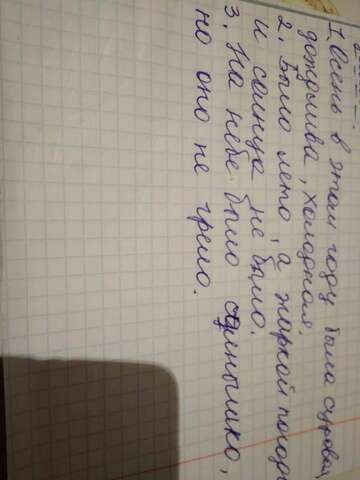 1. Осень в этом году была суровой,
дождлива, холодная.
2. Было лето, а жаркой погоды
и солнца не было.
3. На небе было солнышко,
но оно не грело.